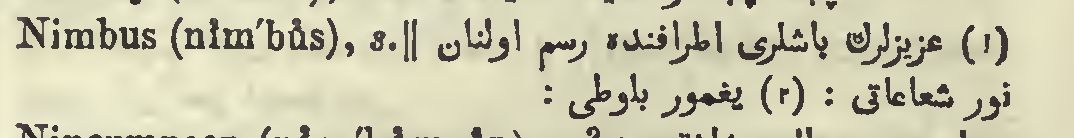 Nimbus (nĭm′bŭs), s.‖ (١) عزیزلرڭ باشلری اطرافنده رسم اولنان
نور شعاعاتی : (٢) یغمور بلوطی :